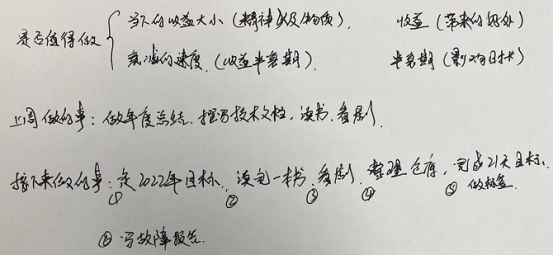 是否值得做 { 当下的收益大小（精神以及物质）. 收益（带来的好处）
衰减的速度.（收益半衰期） 半衰期（影响时长）
上周做的事：做年度总结. 撰写技术文档, 读书. 看剧.
接下来做的事：定2022年目标. 读完一本书. 看剧. 整理仓库, 完成21天目标.
① ② ③ ④ ⑤ 做标签
⑥ 写故障报告.